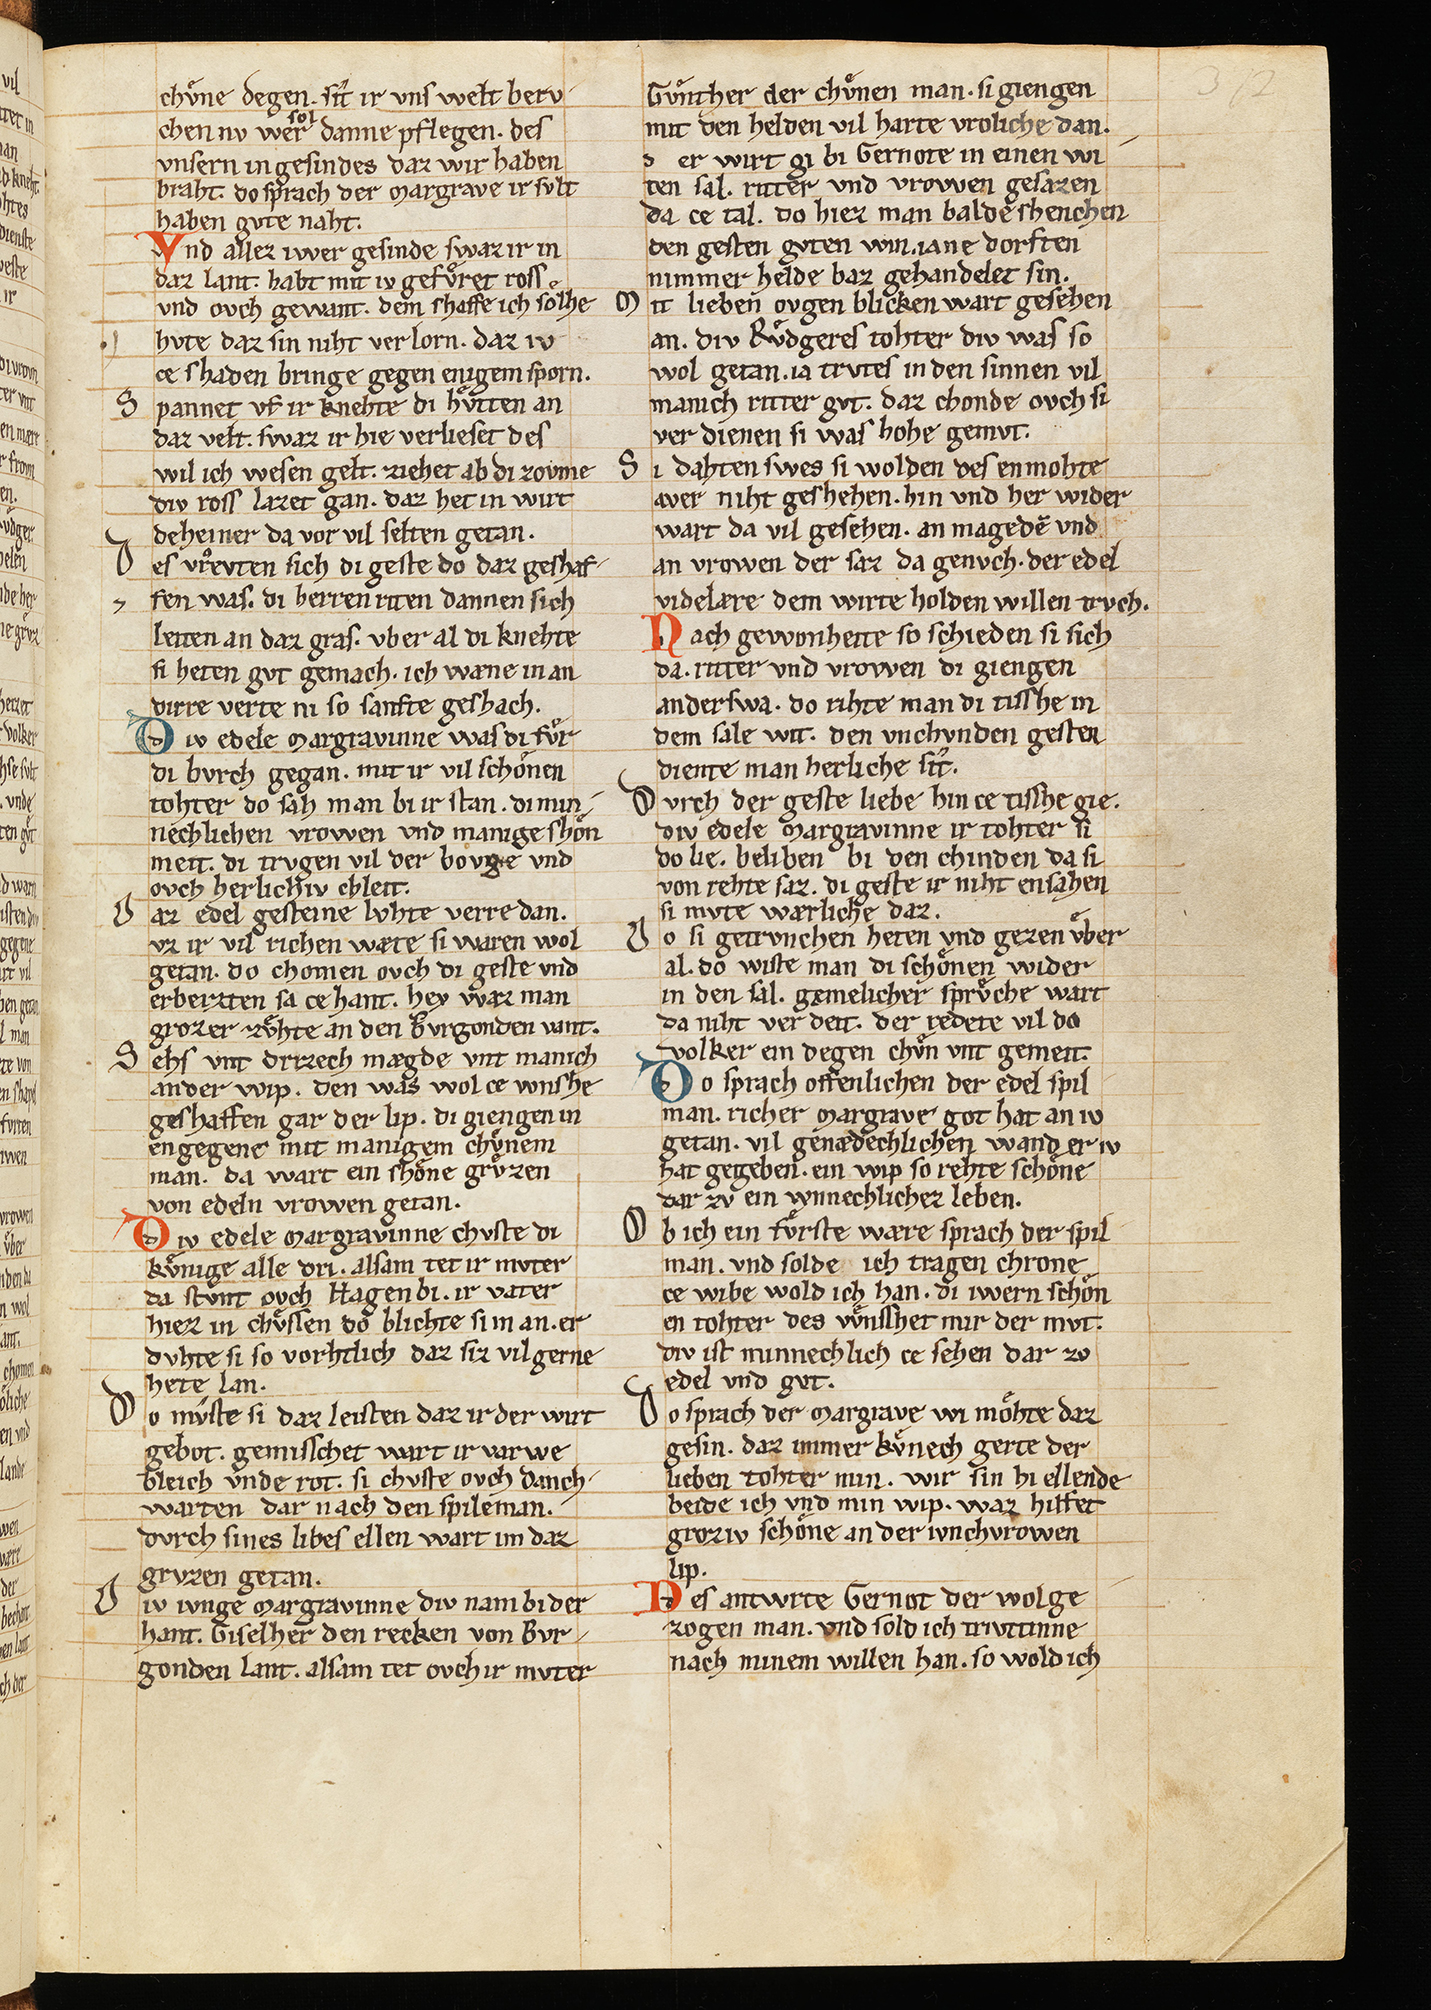 chůne degen. sit ir uns welt beru
chen nv wer sol danne pflegen. des
vnsern in gesindes daz wir haben
braht. do sprach der Margrave ir svlt
haben gvte naht.
Vnd allez iwer gesinde swaz ir in
daz lant. habt mit iv gefůret ross
vnd ovch gewant. dem shaffe ich sölhe
hvte daz sin niht verlorn. daz iv
ce shaden bringe gegen enigem sporn.
S pannet vf ir knehte di hůtten an
daz velt. swaz ir hie verlieset des
wil ich wesen gelt. ziehet ab di zovme
div ross lazet gan. daz het in wirt
deheiner da vor vil selten getan.
D es vrevten sich di geste do daz geshaf
fen was. di herren riten dannen sich
leiten an daz gras. vber al di knehte
si heten gvt gemach. ich wæne in an
dirre verte ni so sanfte geshach.
D iv edele Margravinne was di fůr
di bvrch gegan. mit ir vil schönen
tohter do sah man bi ir stan. di min
nechlichen vrowen vnd manige shön
meit. di trvgen vil der bovge vnd
ovch herlichiv chleit.
D az edel gesteine lvhte verre dan.
vz ir vil richen wæte si waren wol
getan. do chomen ovch di geste vnd
erbeizten sa ce hant. hey waz man
grozer zvhte an den Bvrgonden vant.
S ehs vnt drizech mægde vnt manich
ander wip. den was wol ce wnshe
geshaffen gar der lip. di giengen in
engegene mit manigem chůnem
man. da wart ein shöne grůzen
von edeln vrowen getan.
D iv edele Margravinne chvste di
kůnige alle dri. alsam tet ir mvter
da stvnt ovch Hagen bi. ir vater
hiez in chůssen do blichte si in an. er
dvhte si so vorhtlich daz siz vil gerne
hete lan.
D o mvste si daz leisten daz ir der wirt
gebot. gemisschet wart ir varwe
bleich vnde rot. si chvste ovch Danch
warten dar nach den spileman.
dvrch sines libes ellen wart im daz
grvzen getan.
D iv ivnge Margravinne div nam bi der
hant. Giselher den recken von Bvr
gonden lant. alsam tet ovch ir mvter
Gvnther der chůnen man. si giengen
mit den helden vil harte vroliche dan.
D er wirt gi bi Gernote in einen wi
ten sal. ritter vnd vrowen gesazen
da ce tal. do hiez man balde shenchen
den gesten gvten win. iane dorften
nimmer helde baz gehandelet sin.
M it lieben ovgen blicken wart gesehen
an. div Rvdgeres tohter div was so
wol getan. ia trvtes in den sinnen vil
manich ritter gvt. daz chonde ovch si
ver dienen si was hohe gemvt.
S i dahten swes si wolden des enmohte
aver niht geshehen. hin vnd her wider
wart da vil gesehen. an magedē vnd
an vrowen der saz da genvch. der edel
videlære dem wirte holden willen trvch.
N ach gewonheite so schieden si sich
da. ritter vnd vrowen di giengen
anderswa. do rihte man di tisshe in
dem sale wit. den vnchvnden gesten
diente man herliche sit.
D vrch der geste liebe hin ce tisshe gie.
div edele Margravinne ir tohter si
do lie. beliben bi den chinden da si
von rehte saz. di geste ir niht ensahen
si mvte wærliche daz.
D o si getrvnchen heten vnd gezen vber
al. do wiste man di schönen wider
in den sal. gæmelicher sprůche wart
da niht ver deit. der redete vil do
volker ein degen chůn vnt gemeit.
D o sprach offenlichen der edel spil
man. richer Margrave got hat an iv
getan. vil genædechlichen wand er iv
hat gegeben. ein wip so rehte schöne
dar zv ein wnnechlichez leben.
O b ich ein fůrste wære sprach der spil
man. vnd solde ich tragen chrone
ce wibe wold ich han. di iwern schön
en tohter des wůnsshet mir der mvt.
div ist minnechlich ce sehen dar zv
edel vnd gvt.
D o sprach der Margrave wi möhte daz
gesin. daz immer kůnech gerte der
lieben tohter min. wir sin hi ellende
beide ich vnd min wip. waz hilfet
groziv schöne an der ivnchvrowen
lip.
D es antwrte Gernot der wolge
zogen man. vnd sold ich trivttinne
nach minem willen han. so wold ich